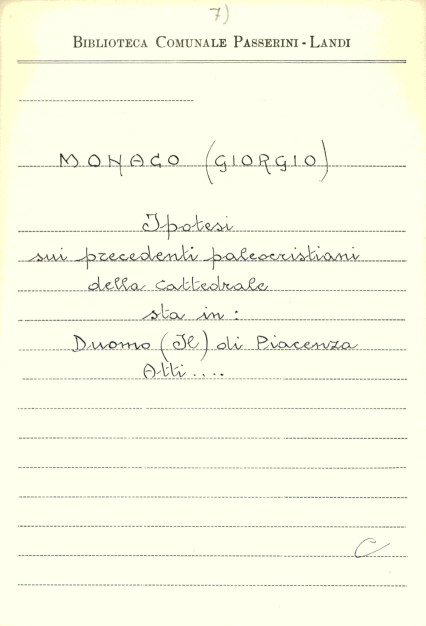 7)
BIBLIOTECA COMUNALE PASSERINI - LANDI
MONACO (GIORGIO)
Ipotesi
sui precedenti paleocristiani
della cattedrale
sta in :
Duomo (Il) di Piacenza
Atti ....
C